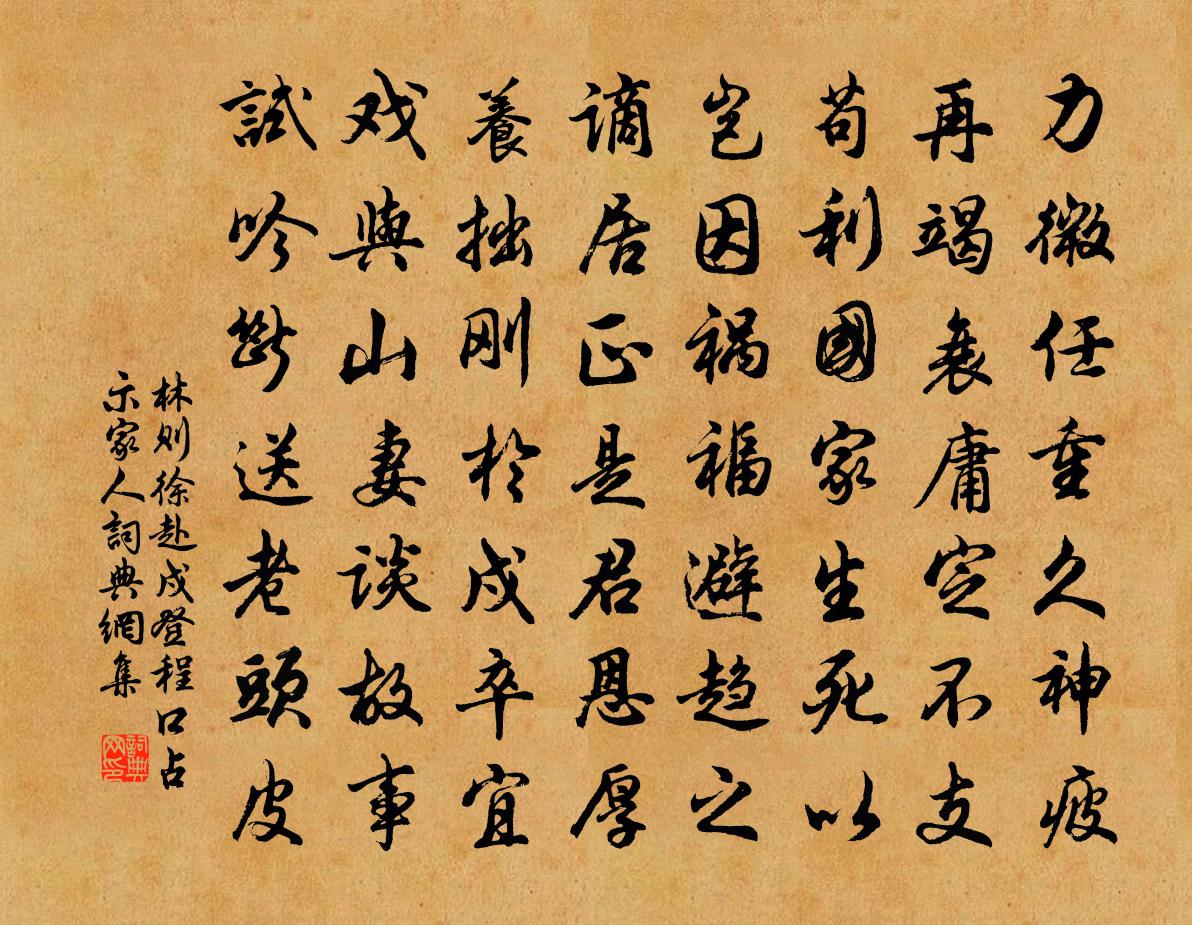 力微任重久神疲
再竭衰庸定不支
苟利國家生死以
岂因禍福避趋之
謫居正是君恩厚
養拙刚於戍卒宜
戏與山妻谈故事
試吟斷送老頭皮
林则徐赴戍登程口占
示家人詞典網集
詞典
网印